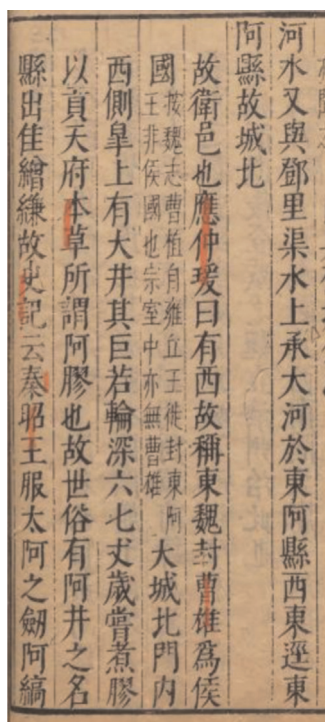 河水又與鄧里渠水上承大河於東阿縣西東逕東
阿縣故城北
故衛邑也應仲瑗曰有西故稱東魏封曹雄爲侯
國按魏志曹植自雍丘王徙封東阿
王非侯國也宗室中亦無曹雄大城北門内
西側臯上有大井其巨若輪深六七丈歲嘗煮膠
以貢天府本草所謂阿膠也故世俗有阿井之名
縣出佳繒縑故史記云秦昭王服太阿之劒阿縞